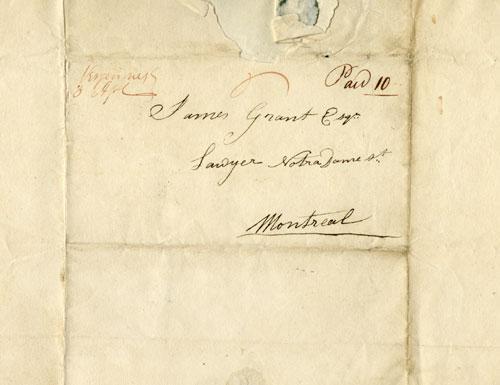 Paid 10
3 Apl
James Grant Esqr.
Lawyer Notradame st
Montreal